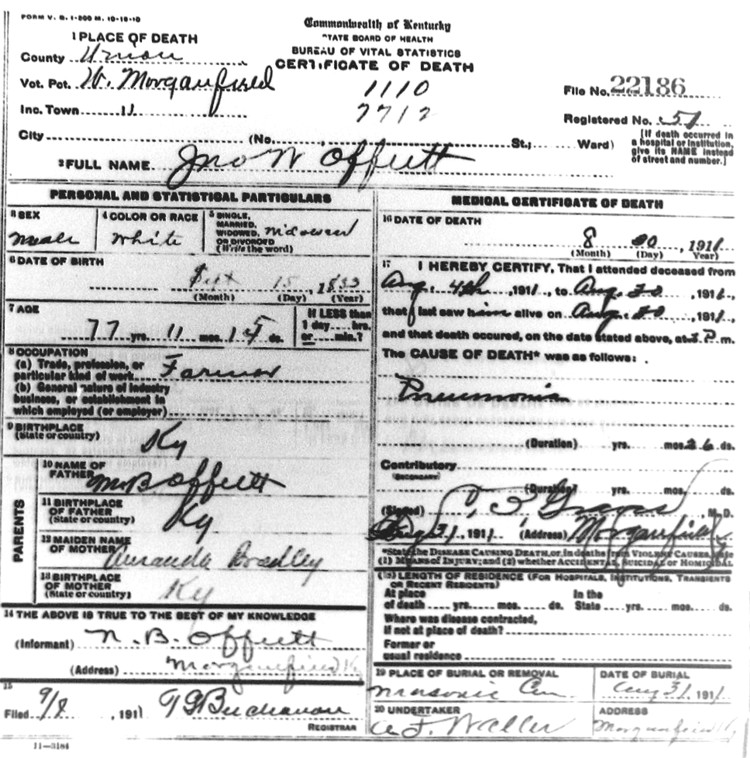 FORM V. S. 1-200 M. 10-19-10
Commonwealth of Kentucky
STATE BOARD OF HEALTH
BUREAU OF VITAL STATISTICS
CERTIFICATE OF DEATH
1 PLACE OF DEATH
County Union
Vot. Pct. W. Morganfield
Inc. Town 11
1110
7712
File No. 22186
Registered No. 51
City (No. St.; Ward)
[If death occurred in a hospital or institution, give its NAME instead of street and number.]
2 FULL NAME Jno W Offutt
PERSONAL AND STATISTICAL PARTICULARS
3 SEX
Male
4 COLOR OR RACE
White
5 SINGLE, MARRIED, WIDOWED, OR DIVORCED (Write the word)
Widower
6 DATE OF BIRTH
Sept 15, 1833
(Month) (Day) (Year)
7 AGE
77 yrs. 11 mos. 15 ds.
If LESS than 1 day.... hrs. or.... min.?
8 OCCUPATION
(a) Trade, profession, or particular kind of work Farmer
(b) General nature of industry business, or establishment in which employed (or employer)
9 BIRTHPLACE
(State or country) Ky
PARENTS
10 NAME OF FATHER M B Offutt
11 BIRTHPLACE OF FATHER (State or country) Ky
12 MAIDEN NAME OF MOTHER Amanda Bradley
13 BIRTHPLACE OF MOTHER (State or country) Ky
14 THE ABOVE IS TRUE TO THE BEST OF MY KNOWLEDGE
(Informant) N. B. Offutt
(Address) Morganfield Ky
15
Filed 9/8, 1911 Buchanan
REGISTRAR
11-3184
MEDICAL CERTIFICATE OF DEATH
16 DATE OF DEATH
8 30, 1911
(Month) (Day) (Year)
17 I HEREBY CERTIFY, That I attended deceased from
Aug. 4th, 1911, to Aug. 30, 1911,
that I last saw him alive on Aug. 30, 1911,
and that death occured, on the date stated above, at P. m.
The CAUSE OF DEATH* was as follows:
Pneumonia
(Duration) yrs. mos. 26 ds.
Contributory
(Secondary)
(Duration) yrs. mos. ds.
(Signed) M.D.
Aug 31, 1911 (Address) Morganfield
*State the DISEASE CAUSING DEATH, or, in deaths from VIOLENT CAUSES, state
(1) MEANS OF INJURY; and (2) whether ACCIDENTAL, SUICIDAL or HOMICIDAL
(18) LENGTH OF RESIDENCE (FOR HOSPITALS, INSTITUTIONS, TRANSIENTS OR RECENT RESIDENTS)
At place of death yrs. mos. ds. In the State yrs. mos. ds.
Where was disease contracted, if not at place of death?
Former or usual residence
19 PLACE OF BURIAL OR REMOVAL
Masonic Cem
DATE OF BURIAL
Aug 31, 1911
20 UNDERTAKER
Waller
ADDRESS
Morganfield Ky